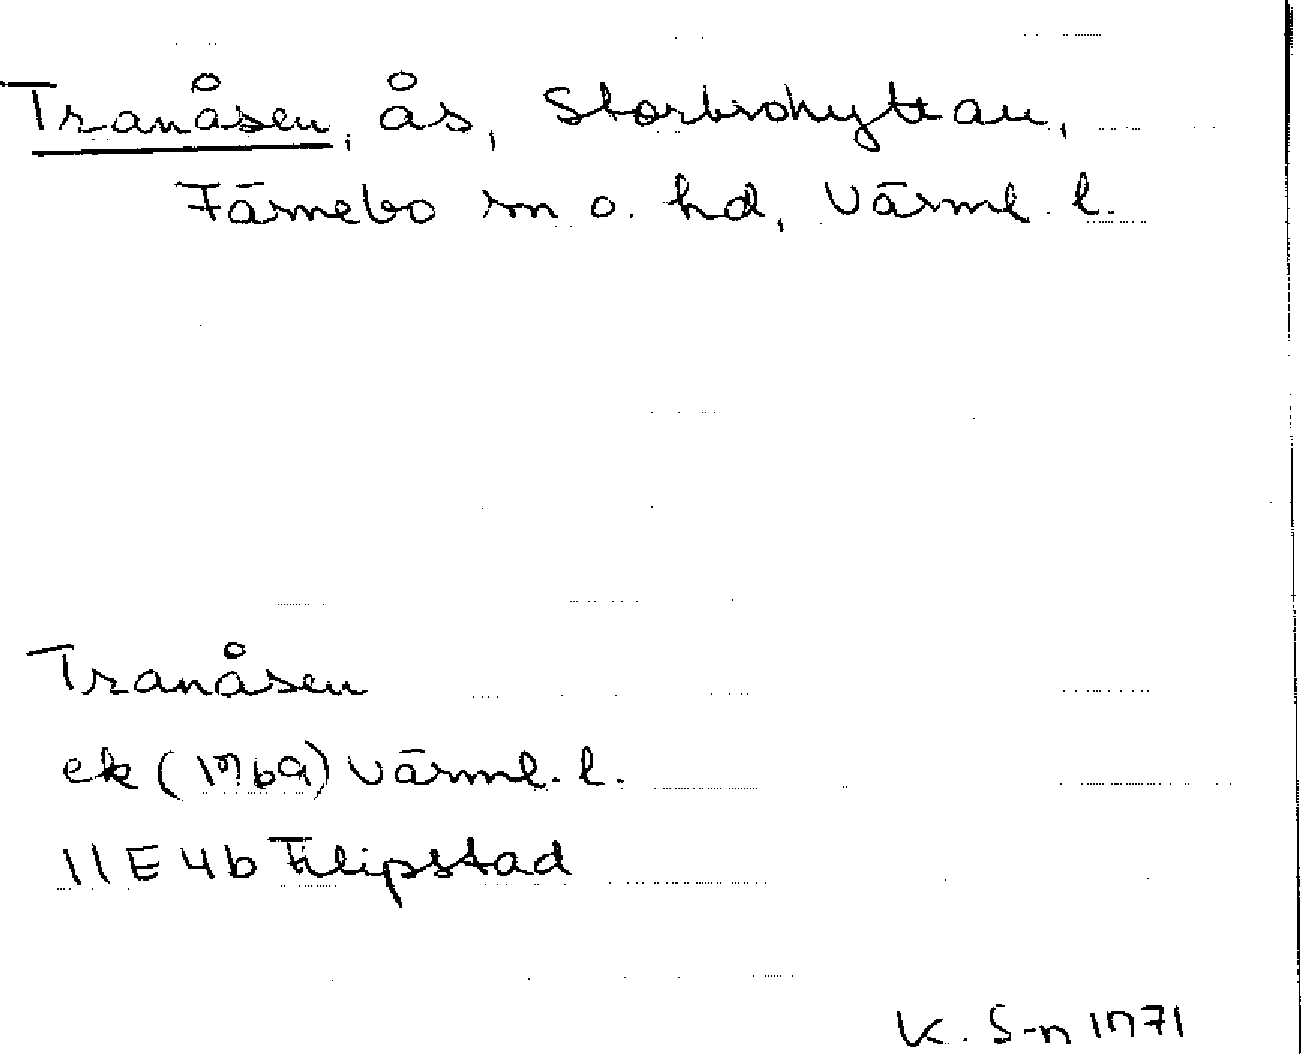 Tranåsen, ås, Storbrohyttan,
Färnebo sn o. hd, Värml. l.
Tranåsen
ek (1969) Värml. l.
11E4b Filipstad
K. S-n 1971